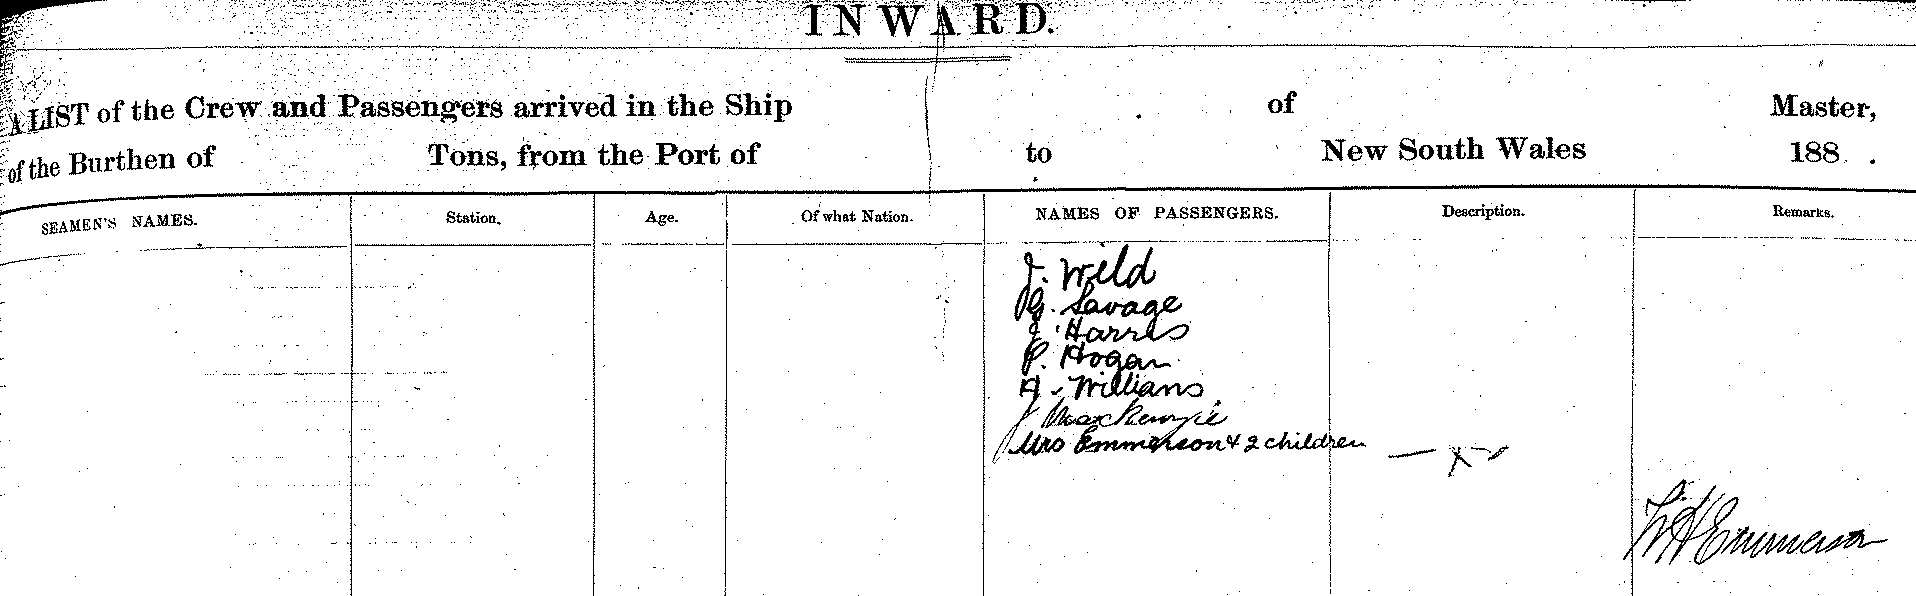 INWARD.
A LIST of the Crew and Passengers arrived in the Ship of Master,
of the Burthen of Tons, from the Port of to New South Wales 188 .
SEAMEN'S NAMES. Station. Age. Of what Nation. NAMES OF PASSENGERS. Description. Remarks.
J. Wild
G. Savage
J. Harris
P. Hogan
A. Williams
J MacKenzie
Mrs Emmerson & 2 children
W H Emmerson